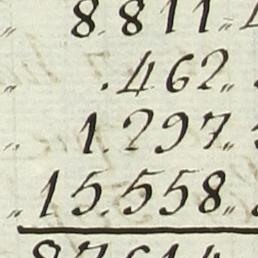 „ 8.811„
„ .462„
„ 1.297„
„ 15.558„